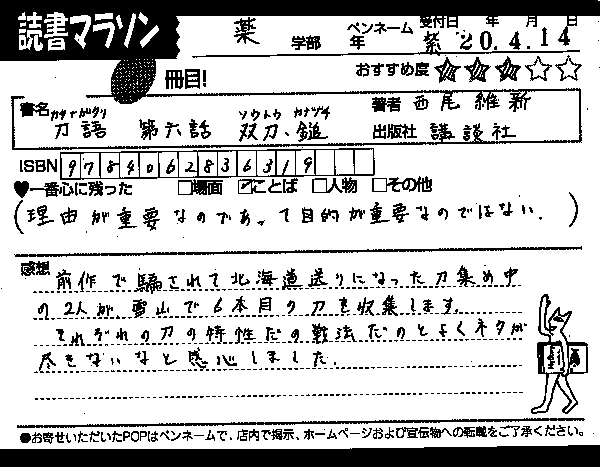 読書マラソン
薬 学部 年 ペンネーム 紫 受付日 年 月 日 20.4.14
冊目! おすすめ度 ★★★☆☆
書名 カタナガタリ ソウトウ カナヅチ 著者 西尾維新
刀語 第六話 双刀・鎚 出版社 講談社
ISBN 9784062836319
♥一番心に残った □場面 ☑ことば □人物 □その他
(理由が重要なのであって目的が重要なのではない.)
感想
前作で騙されて北海道送りになった刀集め中
の2人が雪山で6本目の刀を収集します.
それぞれの刀の特性だの戦法だのとよくネタが
尽きないなと感心しました.
●お寄せいただいたPOPはペンネームで、店内で掲示、ホームページおよび宣伝物への転載をご了承ください。